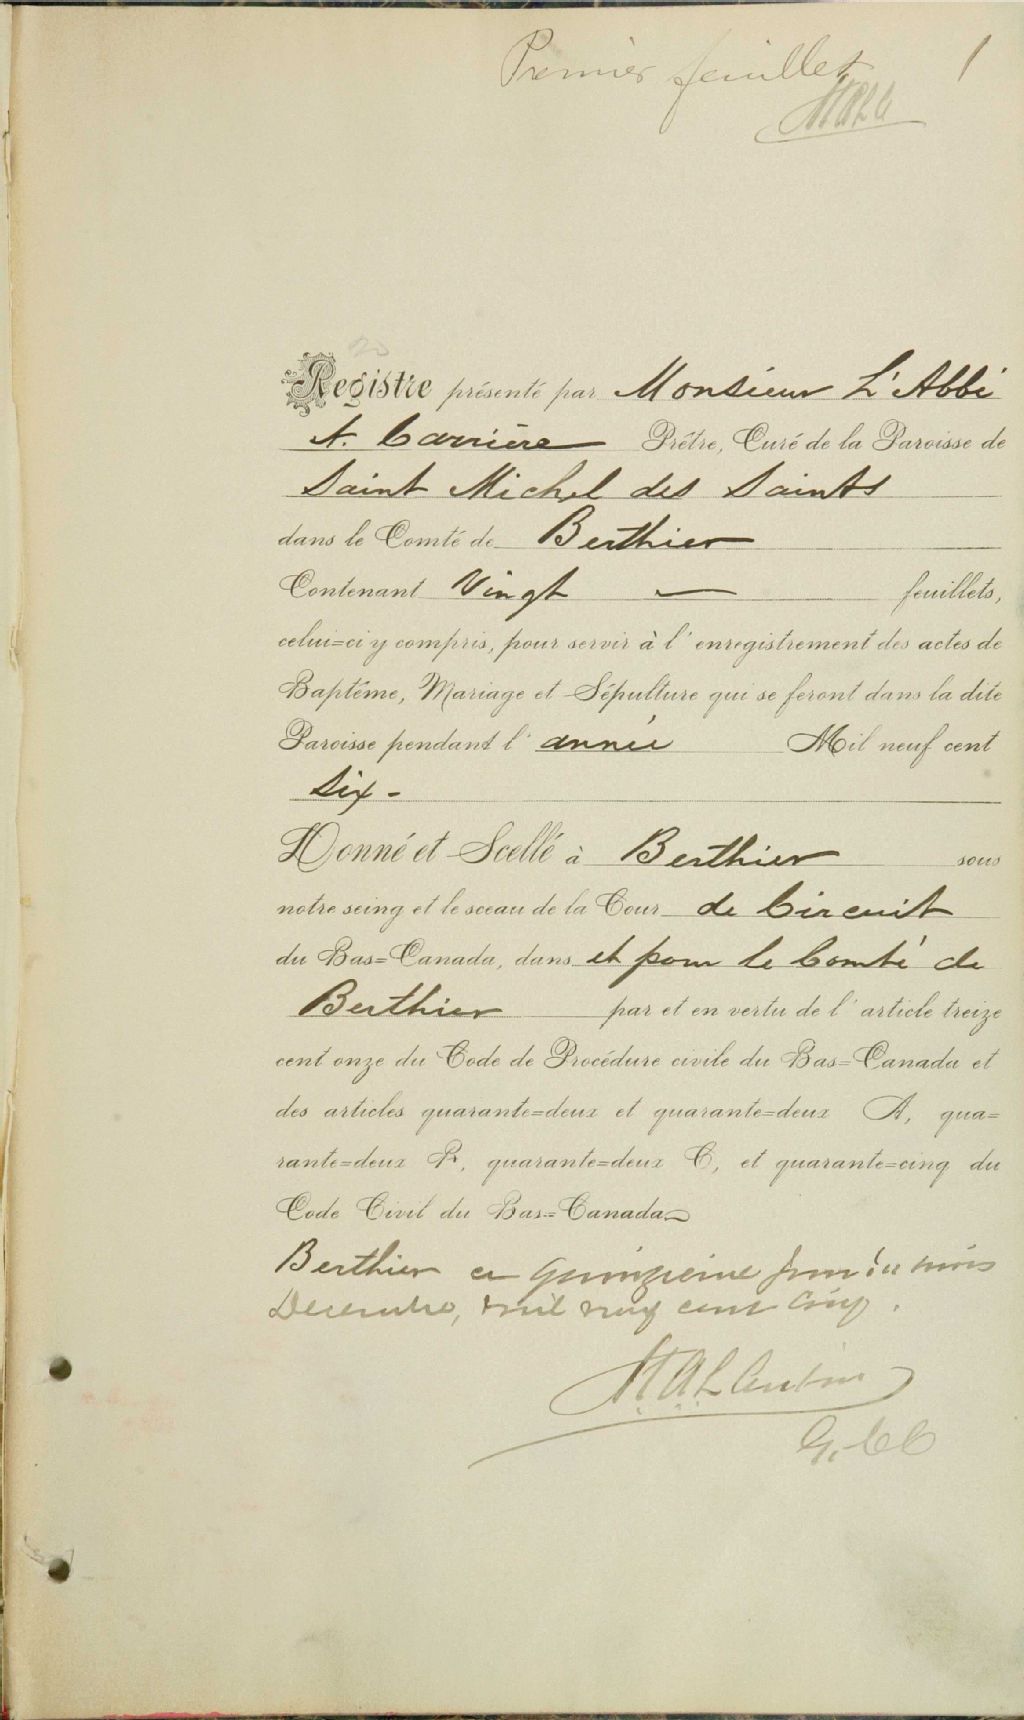 Premier feuillet 1
20
Registre présenté par Monsieur L'Abbé
A. Carrière Prêtre, Curé de la Paroisse de
Saint Michel des Saints
dans le Comté de Berthier
Contenant Vingt — feuillets,
celui=ci y compris, pour servir à l'enregistrement des actes de
Baptême, Mariage et Sépulture qui se feront dans la dite
Paroisse pendant l'année Mil neuf cent
Six -
Donné et Scellé à Berthier sous
notre seing et le sceau de la Cour de Circuit
du Bas=Canada, dans et pour le Comté de
Berthier par et en vertu de l'article treize
cent onze du Code de Procédure civile du Bas=Canada et
des articles quarante=deux et quarante=deux A, qua=
rante=deux B, quarante=deux C, et quarante=cinq du
Code Civil du Bas=Canada
Berthier ce quinzieme jour du mois
Decembre, mil neuf cent cinq.
G. CC